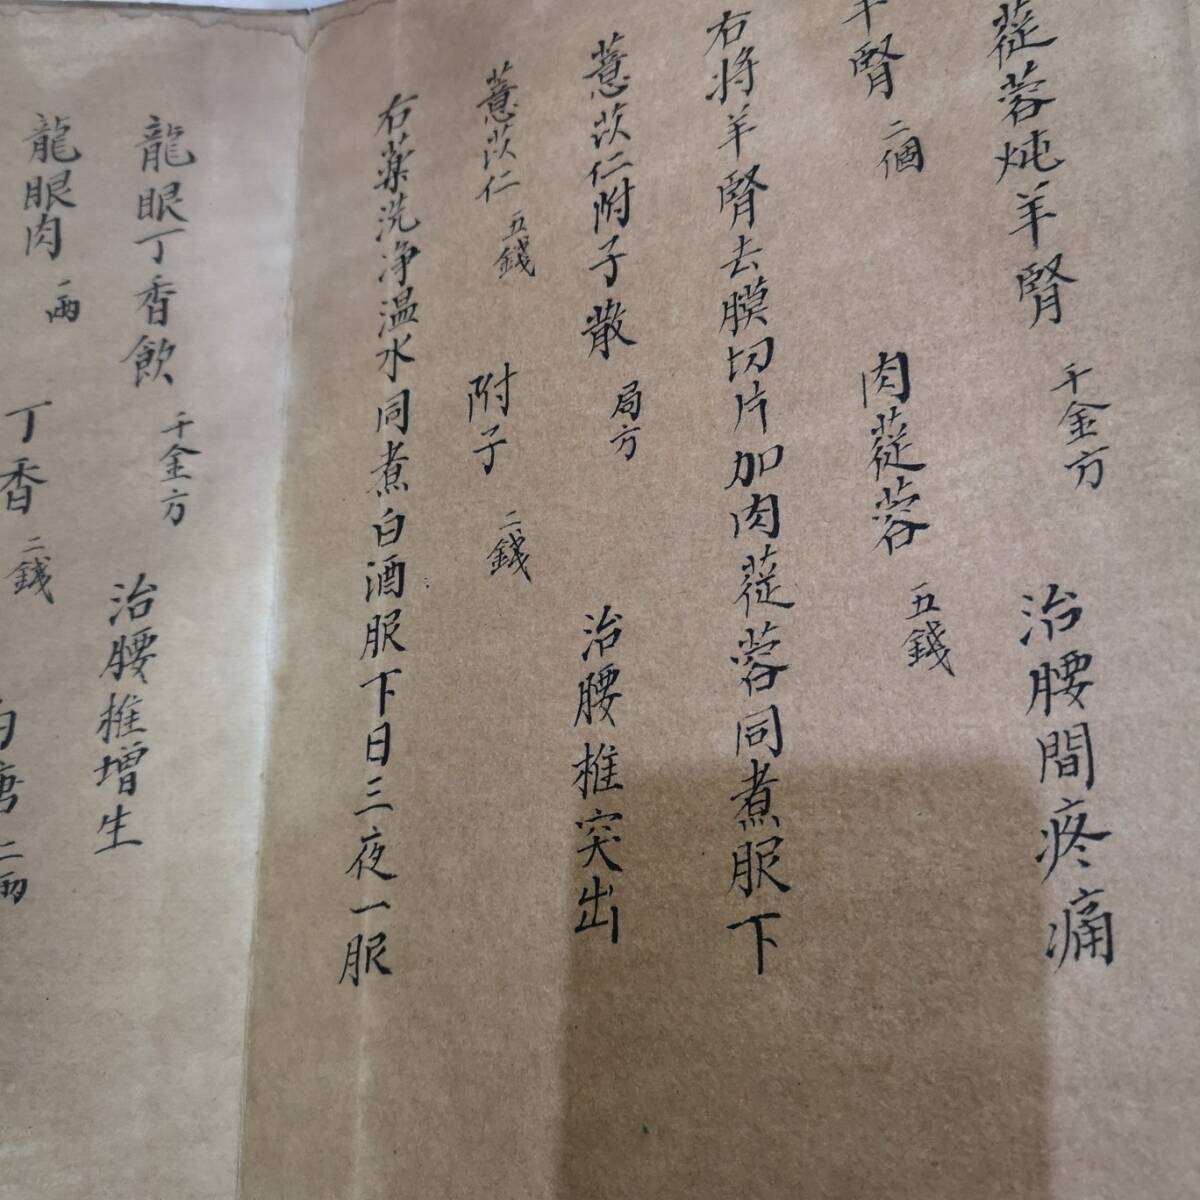 蓯蓉炖羊腎 千金方 治腰間疼痛
羊腎 二個 肉蓯蓉 五錢
右将羊腎去膜切片加肉蓯蓉同煮服下
薏苡仁附子散 局方 治腰椎突出
薏苡仁 五錢 附子 二錢
右薬洗净温水同煮白酒服下日三夜一服
龍眼丁香飲 千金方 治腰椎增生
龍眼肉 一兩 丁香 二錢 二兩